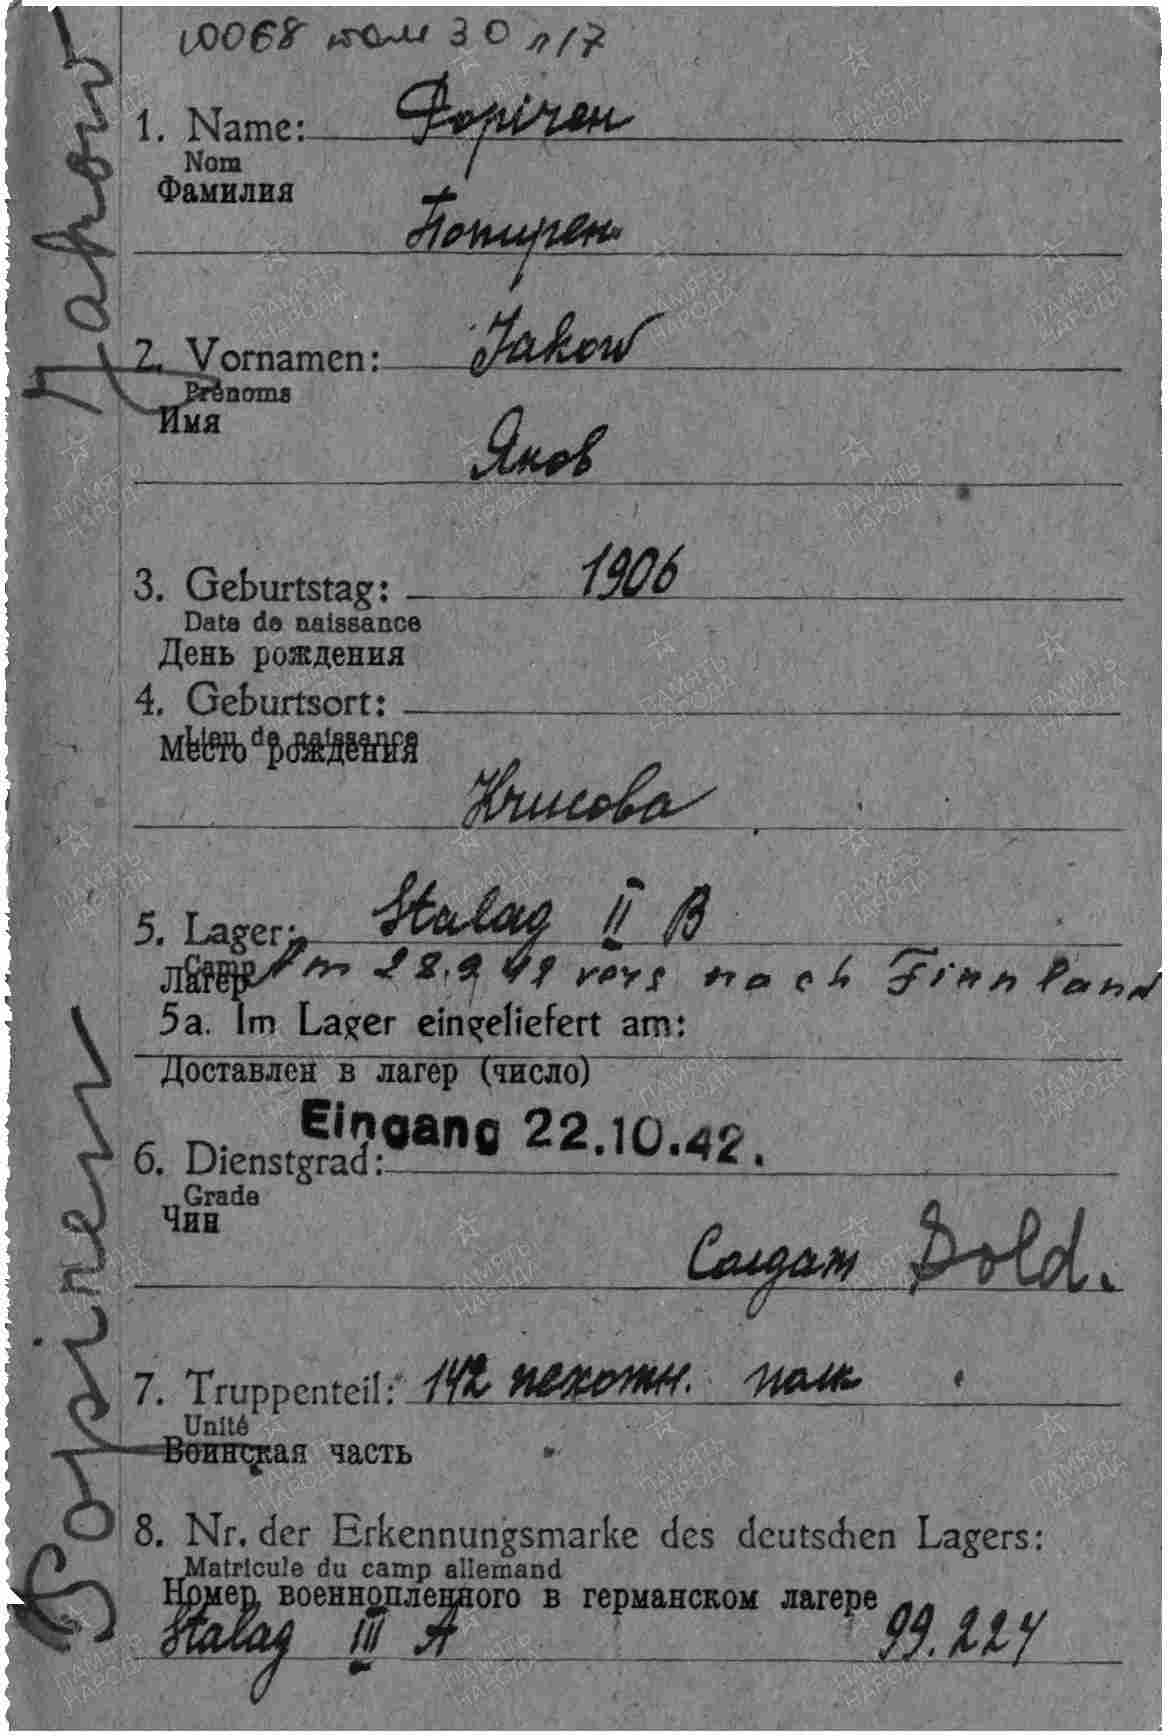 10068 том 30 л 17
1. Name: Форічен
Nom
Фамилия
Попирен
2. Vornamen: Jakow
Prénoms
Имя
Яков
3. Geburtstag: 1906
Date de naissance
День рождения
4. Geburtsort:
Lieu de naissance
Место рождения
5. Lager: Stalag II B
Camp
Лагерь
Am 28.9 42 vers nach Finnland
5a. Im Lager eingeliefert am:
Доставлен в лагер (число)
Eingang 22.10.42.
6. Dienstgrad:
Grade
Чин
Солдат Sold.
7. Truppenteil: 142 пехотн. полк
Unité
Воинская часть
8. Nr. der Erkennungsmarke des deutschen Lagers:
Matricule du camp allemand
Номер военнопленного в германском лагере
Stalag III A 99.224
Popiren
Jakow